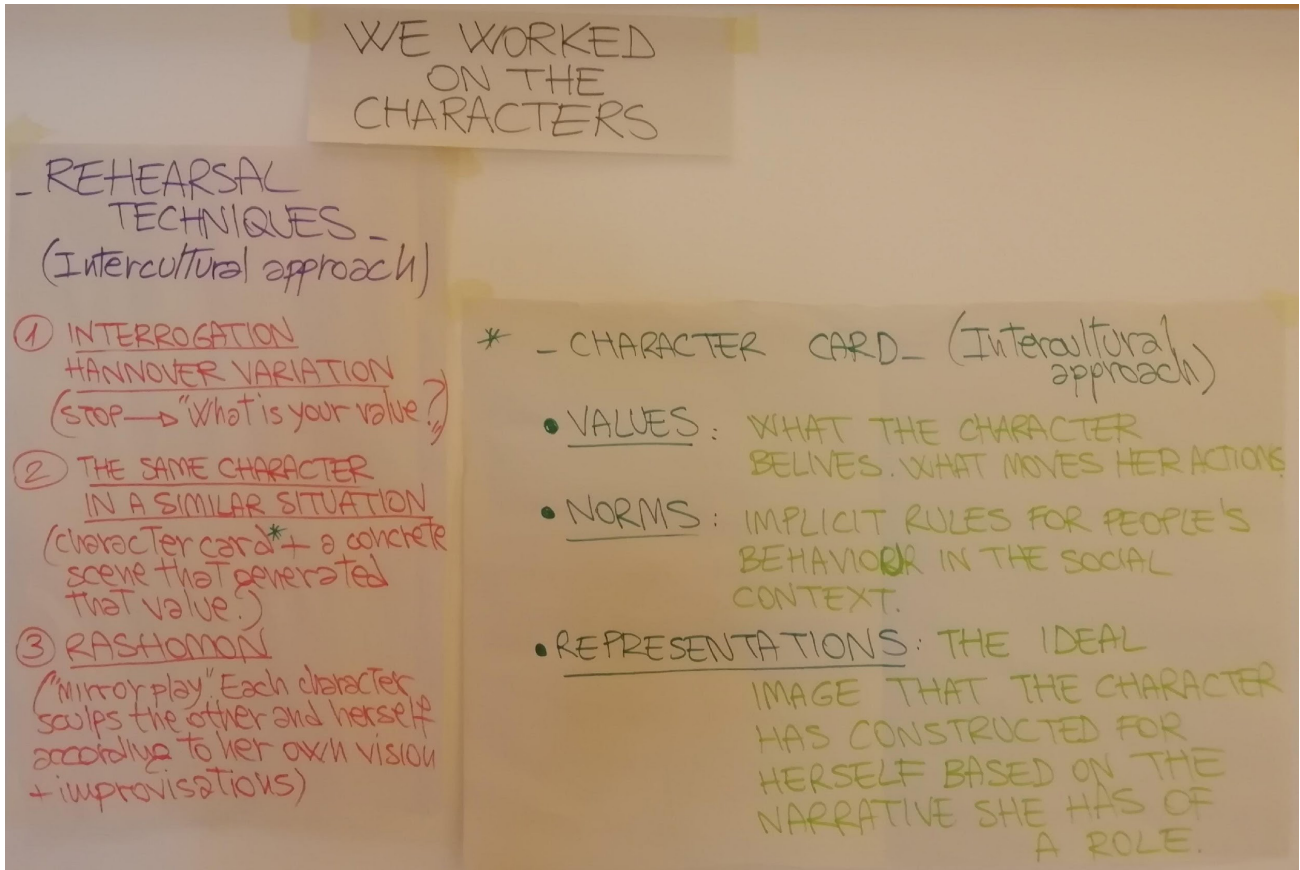 WE WORKED
ON THE
CHARACTERS
_ REHEARSAL
TECHNIQUES _
(Intercultural approach)
① INTERROGATION
HANNOVER VARIATION
(STOP → "What is your value?")
② THE SAME CHARACTER
IN A SIMILAR SITUATION
(character card* + a concrete
scene that generated
that value?)
③ RASHOMON
("Mirror play". Each character
sculps the other and herself
according to her own vision
+ improvisations)
* _ CHARACTER CARD _ (Intercultural
approach)
• VALUES: WHAT THE CHARACTER
BELIVES. WHAT MOVES HER ACTIONS
• NORMS: IMPLICIT RULES FOR PEOPLE'S
BEHAVIOUR IN THE SOCIAL
CONTEXT.
• REPRESENTATIONS: THE IDEAL
IMAGE THAT THE CHARACTER
HAS CONSTRUCTED FOR
HERSELF BASED ON THE
NARRATIVE SHE HAS OF
A ROLE.